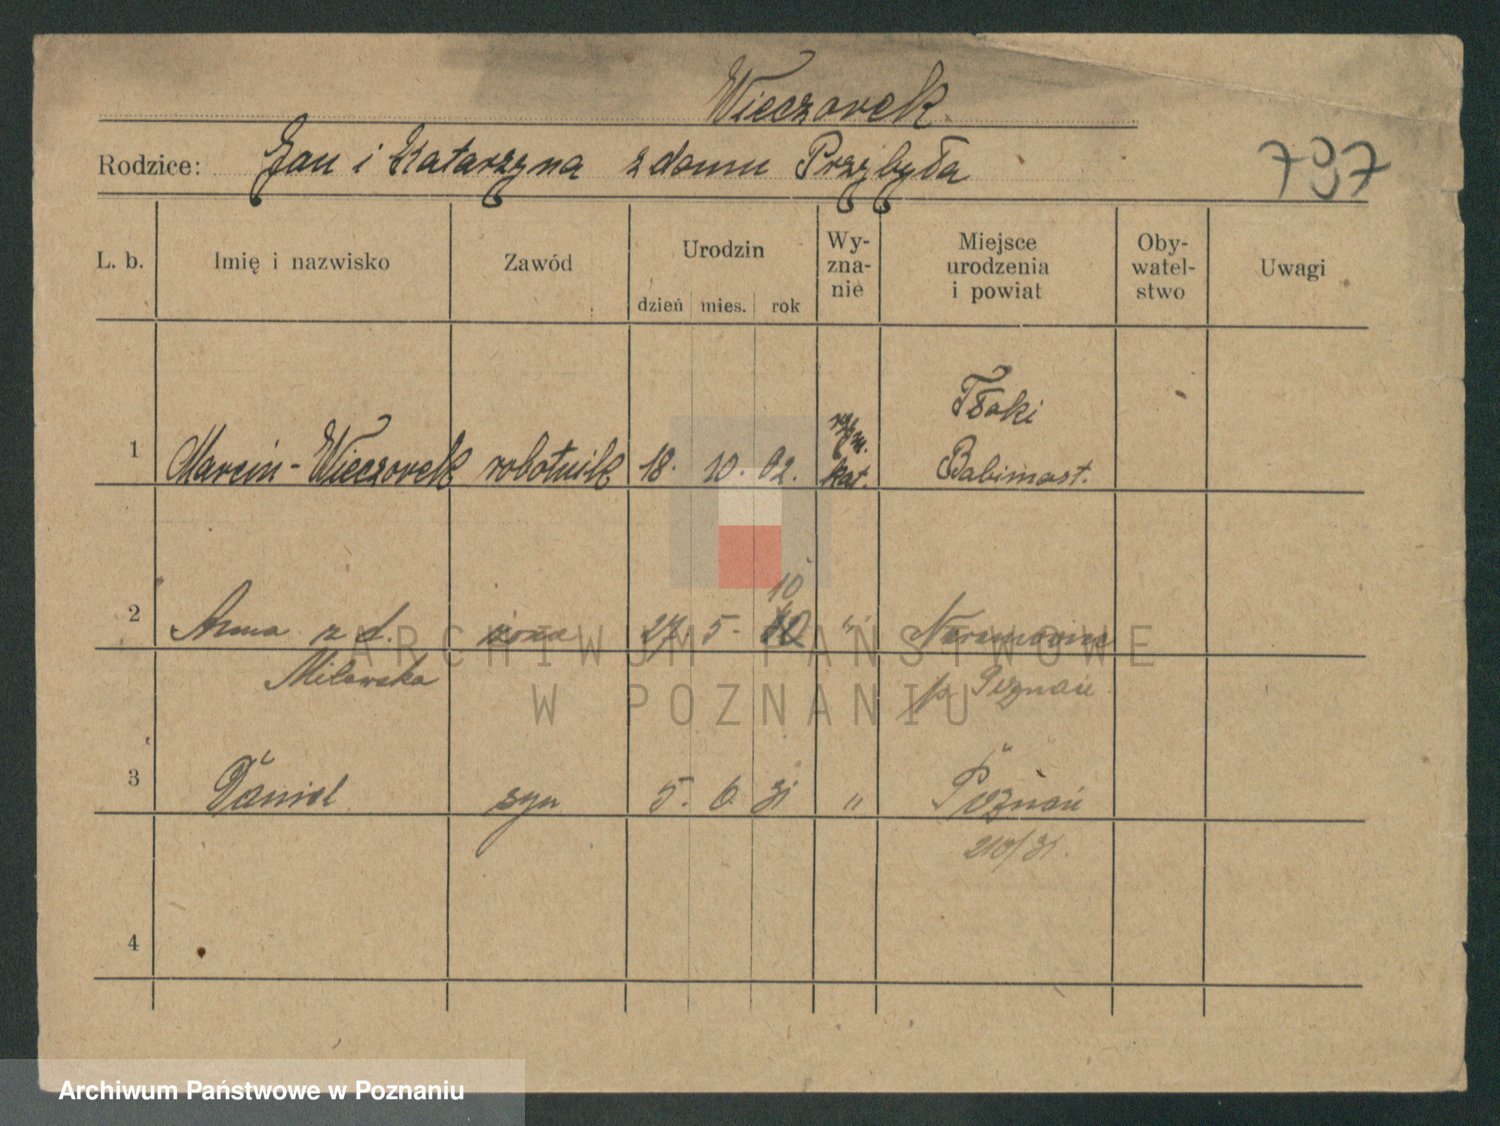 Wieczorek.
Rodzice: Jan i Katarzyna z domu Przybyła
797
L. b. Imię i nazwisko Zawód Urodzin dzień mies. rok Wy-zna-nie Miejsce urodzenia i powiat Oby-watel-stwo Uwagi
Tłoki
1 Marcin - Wieczorek robotnik 18. 10. 02. rzym. kat. Babimost.
10
2 Anna z d. żona 27. 5. " Naramowice
Milewska p. Poznań
3 Daniel syn 5. 6. 31 " Poznań
210/31.
4
ARCHIWUM PAŃSTWOWE
W POZNANIU
Archiwum Państwowe w Poznaniu